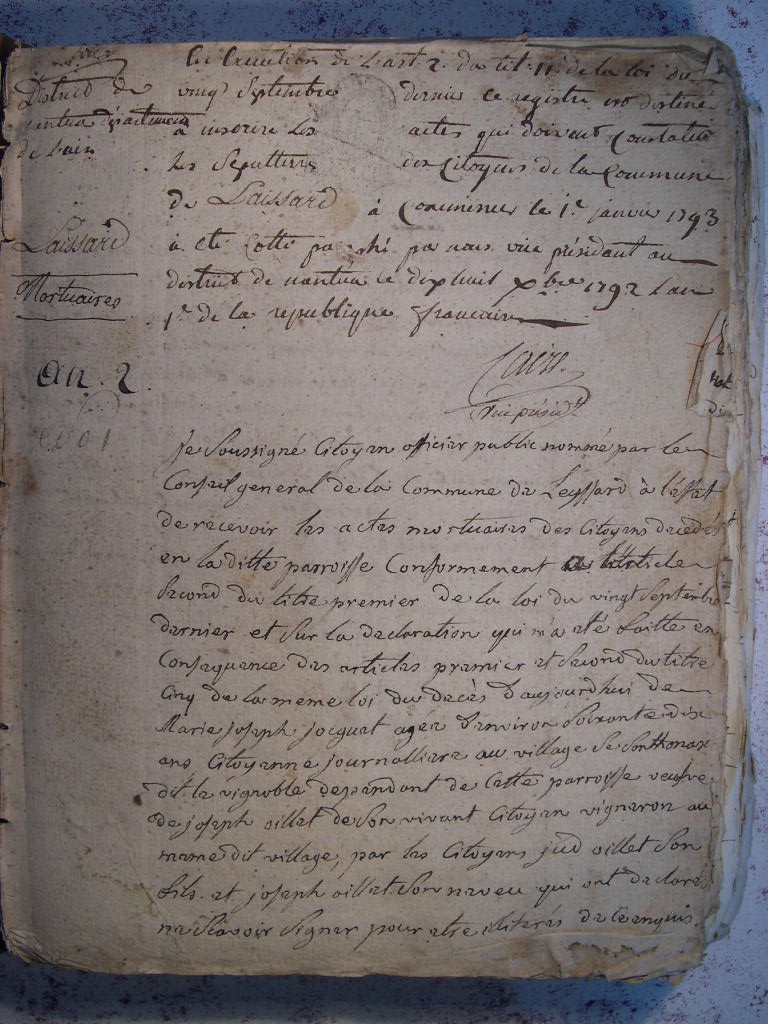 District de
nantua département
de Lain
Laissard
Mortuaires
an. 2
En Execution de L'art 2. du tit. 11. de la loi du
vingt Septembre dernier ce registre est destiné
a inscrire Les actes qui doivent Constater
les Sepultures des Citoyens de la Commune
de Laissard à Commencer le 1er janvier 1793
a eté Cotté paraphé par nous vice président au
district de nantua ce dixhuit Xbre 1792 Lan
1er de la republique francaise
vice présidt
je Soussigné Citoyen officier public nommé par le
Conseil general de la Commune de Leyssard à l'effet
de recevoir les actes mortuaires des Citoyens decedés
en la ditte parroisse Conformement a l'article
Second du titre premier de la loi du vingt Septembre
dernier et Sur la declaration qui m'a eté faitte en
Consequance des articles premier et Second du titre
Cinq de la meme loi du decès d'aujourdhui de
Marie joseph jocquet agee d'environ Soixante dix
ans Citoyenne journalliere au village de Sonthonax
dit la vignoble dependant de Cette parroisse veufve
de joseph oillet de Son vivant Citoyen vigneron au
meme dit village, par les Citoyens oillet Son
fils et joseph oillet Son neveu qui ont declarés
ne Scavoir Signer pour etre iliterés de ce enquis